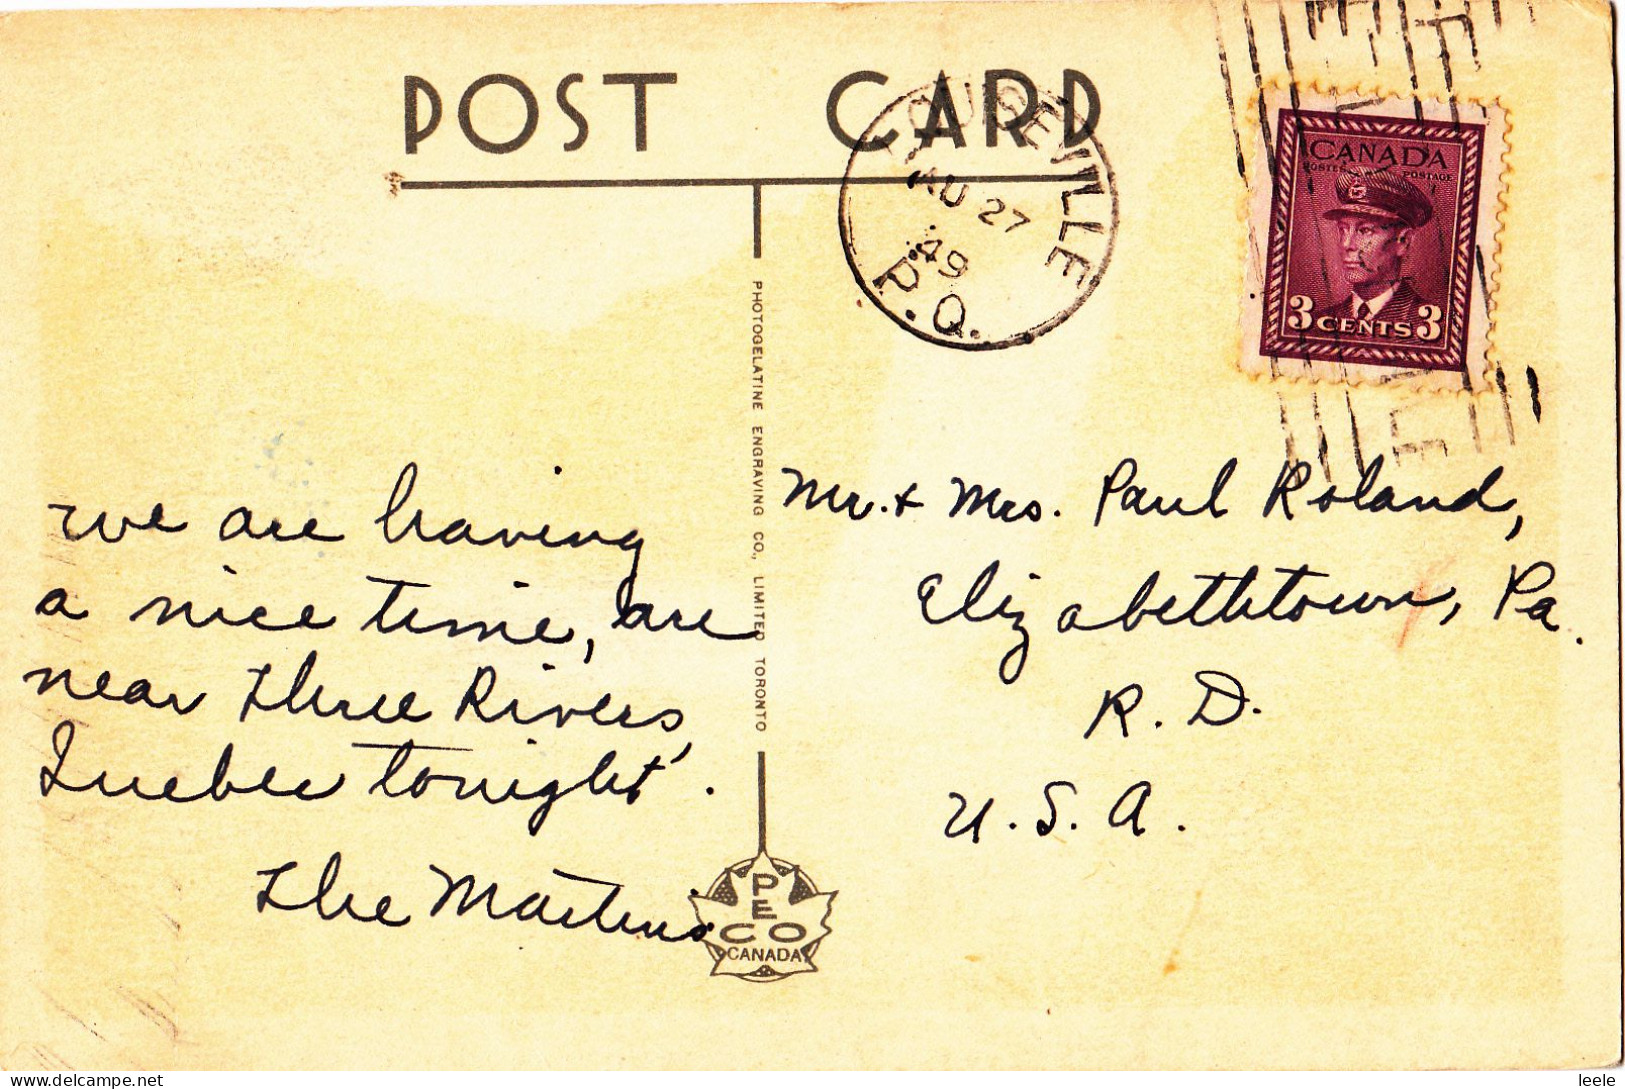 POST CARD
LOUISEVILLE
AU 27
49
P.Q.
CANADA
POSTES POSTAGE
3 CENTS 3
PHOTOGELATINE ENGRAVING CO., LIMITED TORONTO
we are having
a nice time, are
near Three Rivers,
Quebec tonight.
The Martins
Mr. & Mrs. Paul Roland,
Elizabethtown, Pa.
R. D.
U. S. A.
PECO
CANADA
© DELCAMPE.NET
leele